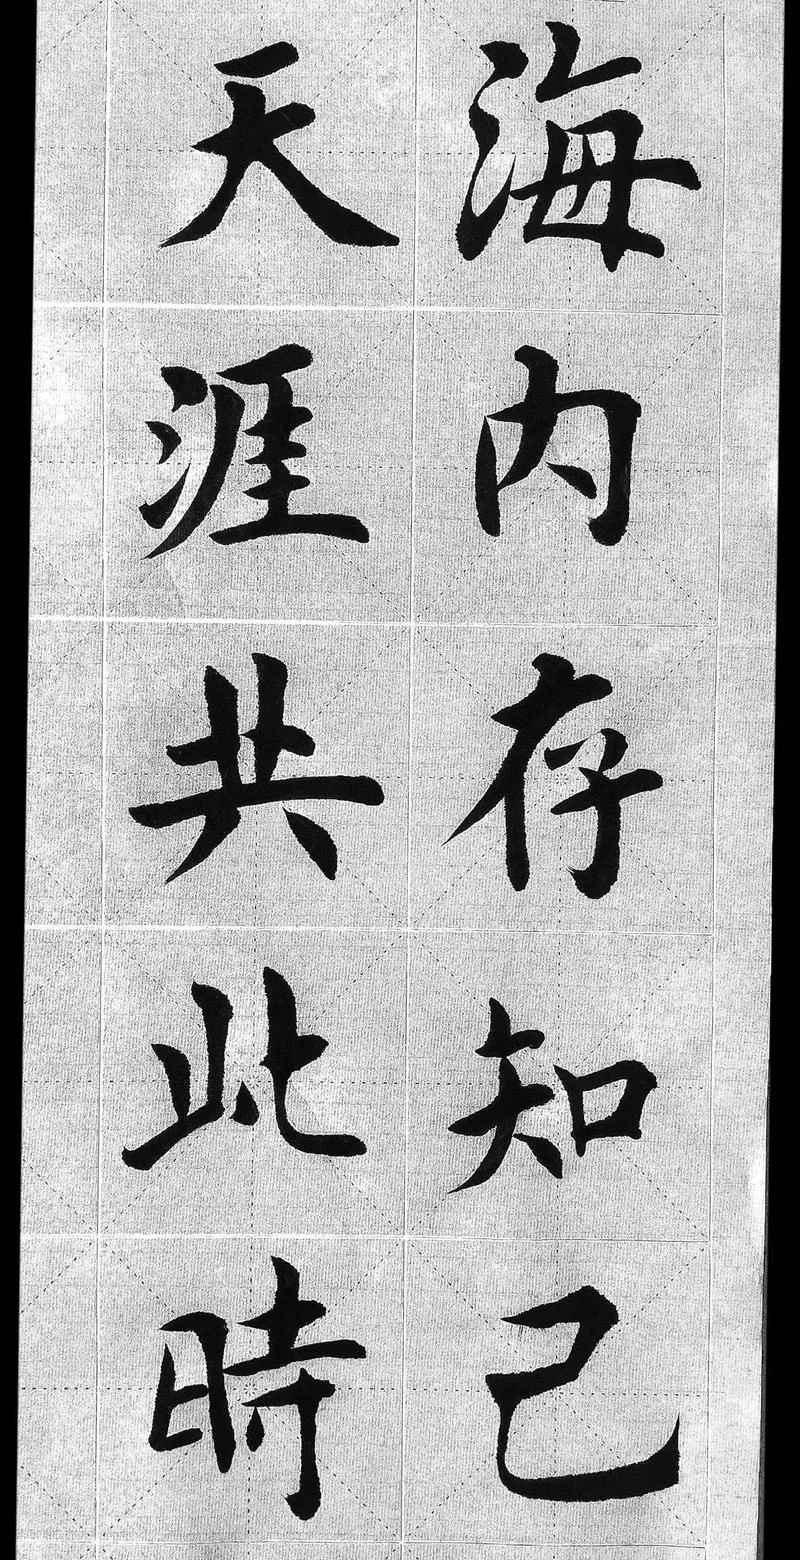 海内存知己
天涯共此時